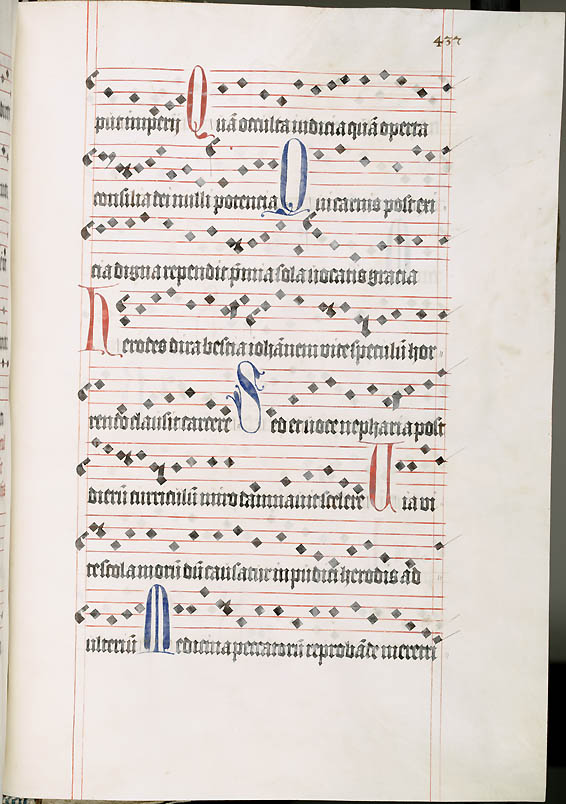 437
pūt imperij Quā occulta iudicia quā operta
consilia dei nulli potencia Qui carnis post exi
cia digna rependit p̄mia sola vocatis gracia
Herodes dira bestia iohānem vite speculū hor
rendo clausit carcere Sed et voce nepharia post
dierū curriculū miro damnauit scelere Uia vi
te scola morū dū causatur inpudici herodis ad
ulteriū Medicina peccatorū reprobāte meretri